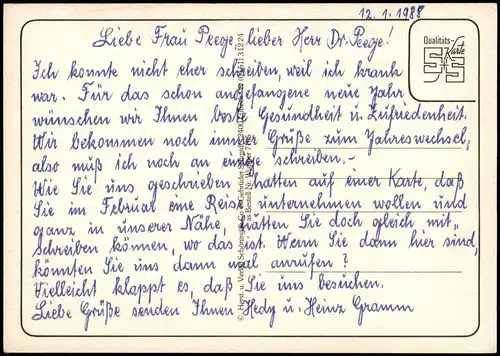 12.1.1988
Liebe Frau Peege, lieber Herr Dr. Peege!
Qualitäts-
Karte
Ich konnte nicht eher schreiben, weil ich krank
war. Für das schon angefangene neue Jahr
wünschen wir Ihnen beste Gesundheit u. Zufriedenheit.
Wir bekommen noch immer Grüße zum Jahreswechsel,
also muß ich noch an einige schreiben.-
Wie Sie uns geschrieben hatten auf einer Karte, daß
Sie im Februar eine Reise unternehmen wollen und
ganz in unserer Nähe, hätten Sie doch gleich mit
schreiben können, wo das ist. Wenn Sie dann hier sind,
könnten Sie uns dann mal anrufen?
Vielleicht klappt es, daß Sie uns besuchen.
Liebe Grüße senden Ihnen Hedy u. Heinz Gramm